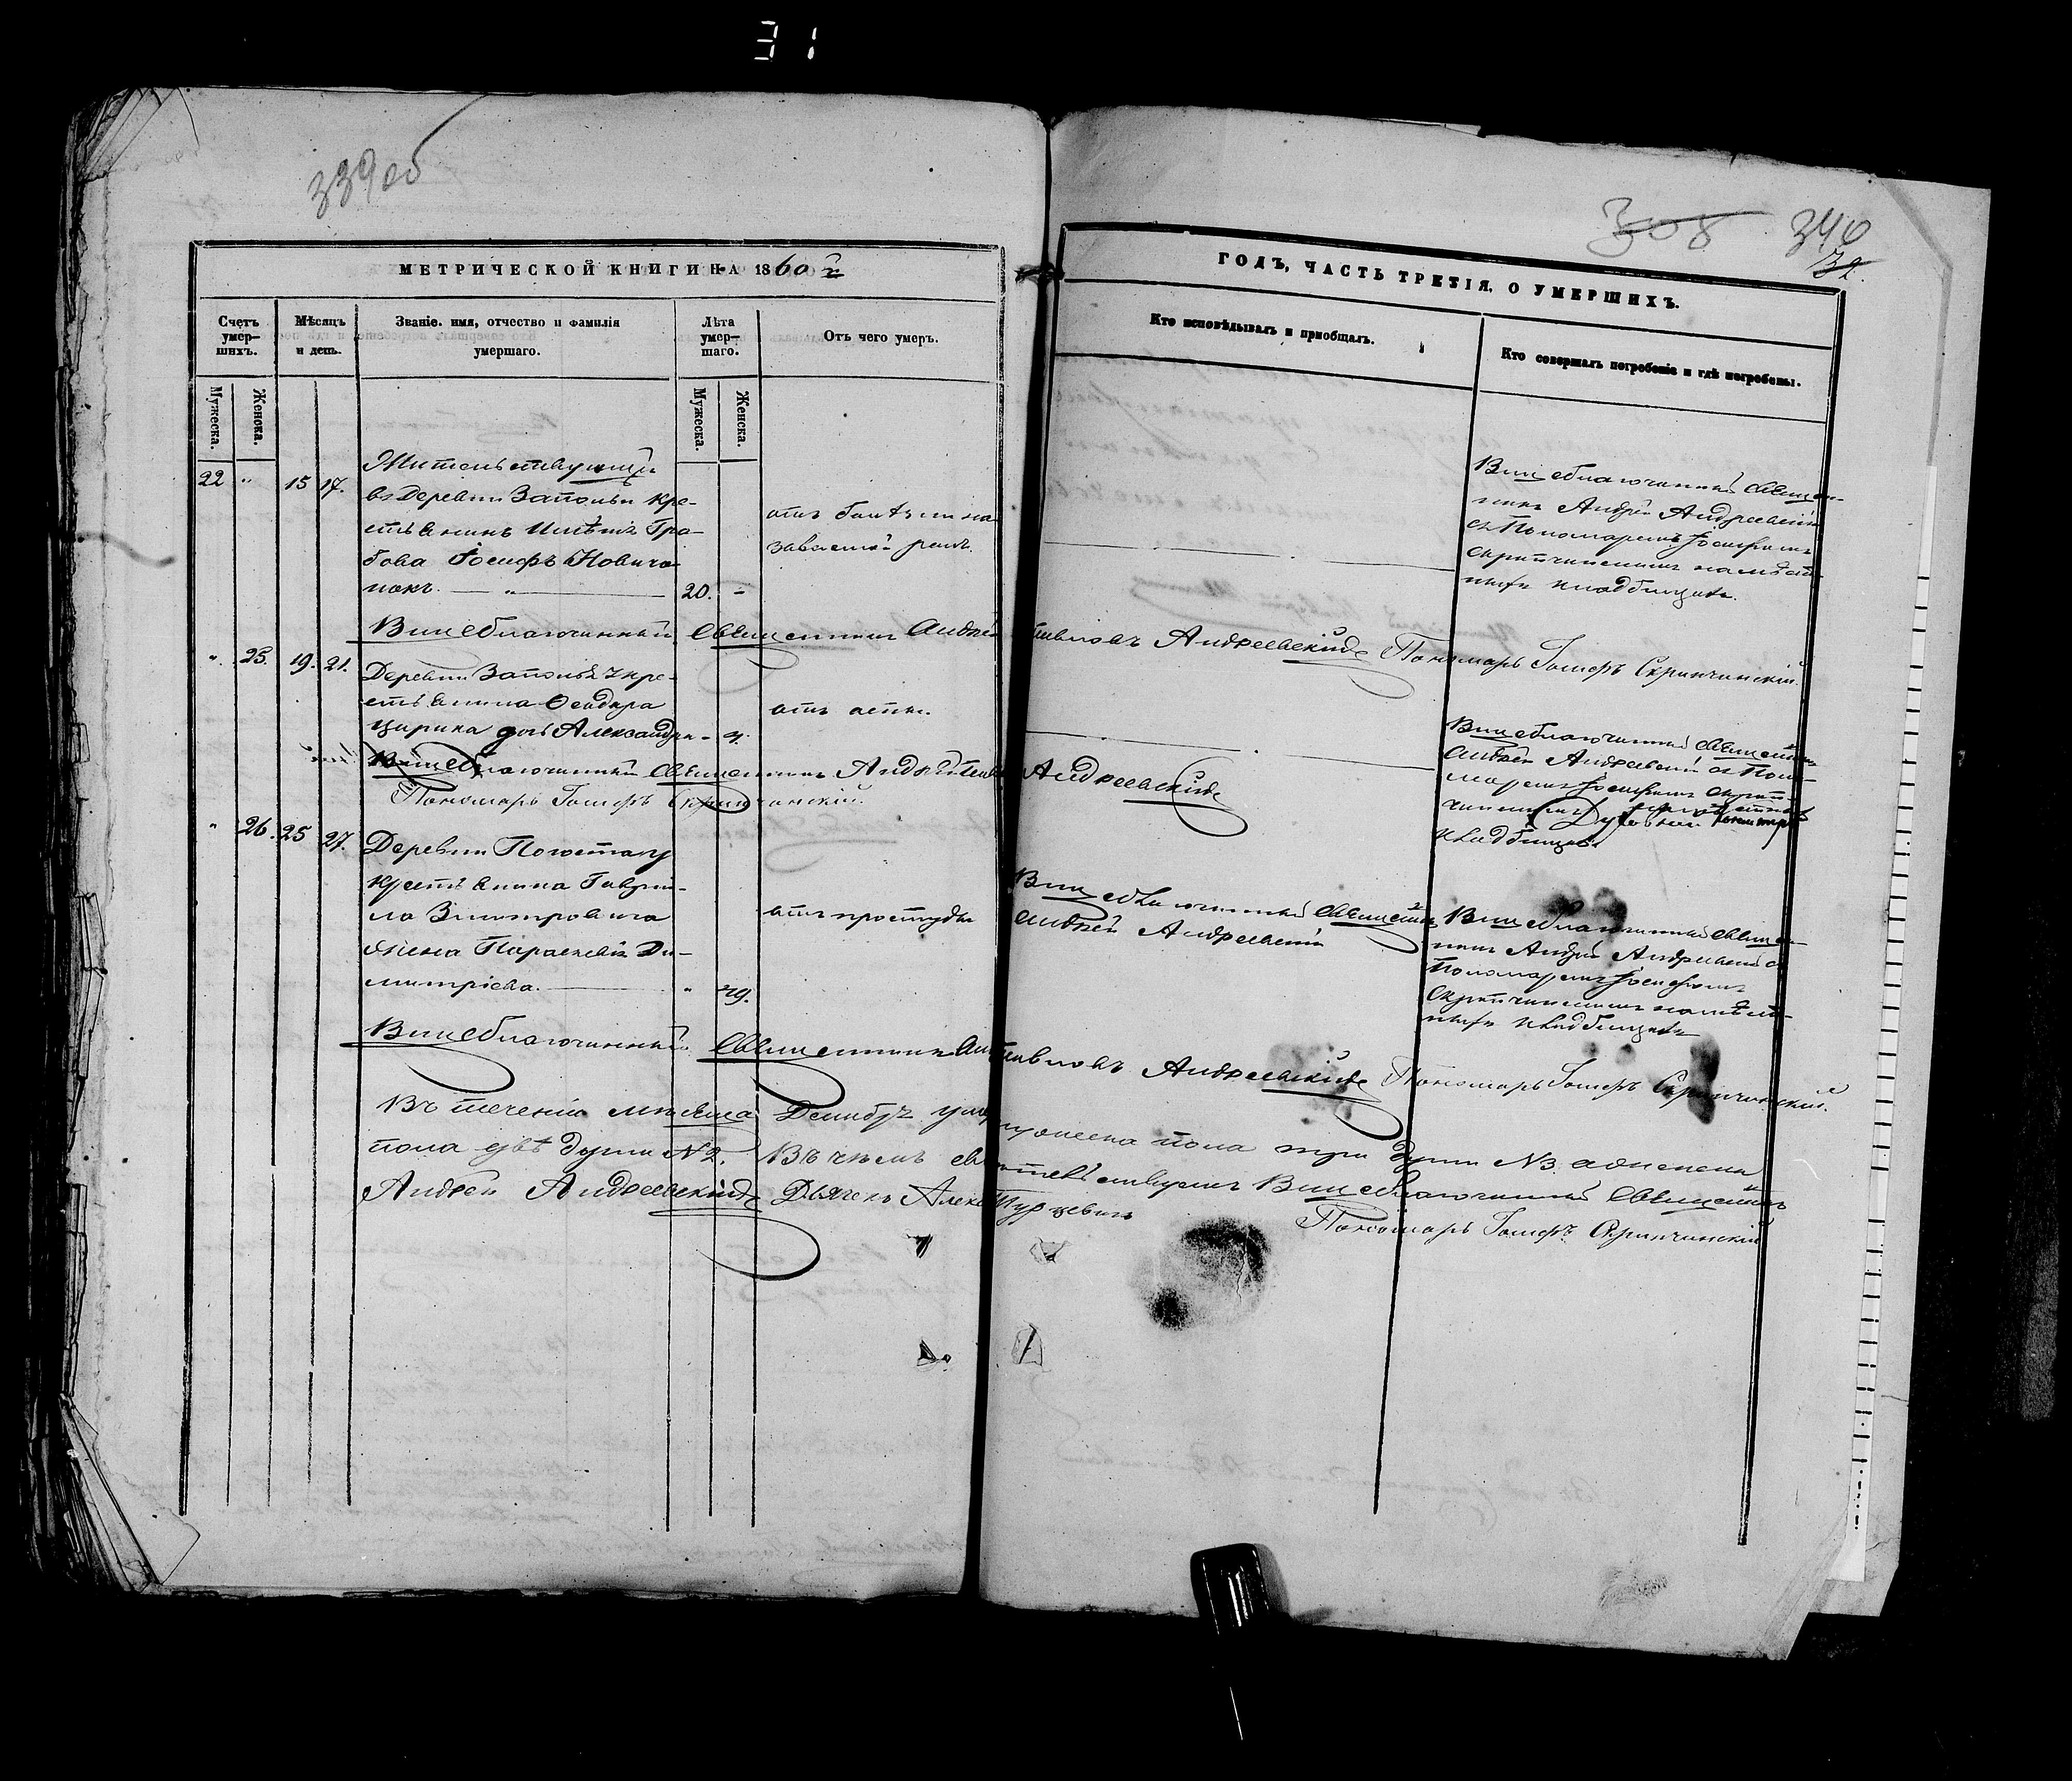 31
339об
308 340
32
МЕТРИЧЕСКОЙ КНИГИ НА 1860 г
ГОДЪ, ЧАСТЬ ТРЕТІЯ, О УМЕРШИХЪ.
Счетъ умер-
шихъ.
Мѣсяцъ
и день.
Званіе, имя, отчество и фамилія
умершаго.
Лѣта
умер-
шаго.
Отъ чего умеръ.
Кто исповѣдывалъ и пріобщалъ.
Кто совершалъ погребеніе и гдѣ погребены.
Мужеска.
Женска.
Мужеска.
Женска.
22 " 15 17.
Жительствующій
въ Деревни Заполье кре-
стьянинъ
Іосифъ Новичо-
нокъ. — " — 20. "
отъ
Вицеблагочинный Священ-
никъ Андрей Андреевскій
съ Пономаремъ Іосифомъ
Скрипчинскимъ на мѣст-
номъ кладбищѣ.
Вицеблагочинный Священникъ Андрей Павловъ Андреевскій Пономарь Іосифъ Скрипчинскій.
" 25. 19. 21.
Деревни Заполья кре-
стьянина Ѳеодора
Цирика дочь Александра - 4.
отъ оспы.
Вицеблагочинный Священникъ
Андрей Андреевскій съ Поно-
маремъ Іосифомъ Скрип-
чинскимъ
кладбищѣ
Вицеблагочинный Священникъ Андрей Павловъ Андреевскій
Пономарь Іосифъ Скрипчинскій.
" 26. 25 27.
Деревни
крестьянина Гаврі-
ла Змитровича
жена Параскевія Ди-
митріева. — " 49.
отъ простуды
Вицеблагочинный Священникъ
Андрей Андреевскій
Вицеблагочинный Священ-
никъ Андрей Андреевскій съ
Пономаремъ Іосифомъ
Скрипчинскимъ на мѣст-
номъ кладбищѣ
Вицеблагочинный Священникъ Андрей Павловъ Андреевскій Пономарь Іосифъ Скрипчинскій.
Въ теченіи мѣсяца Декабрѣ
пола двѣ души № 2.
пола три души № 3. а женска
Въ чемъ свидѣтельствуемъ Вицеблагочинный Священникъ
Андрей Андреевскій Дьячекъ
Пономарь Іосифъ Скрипчинскій